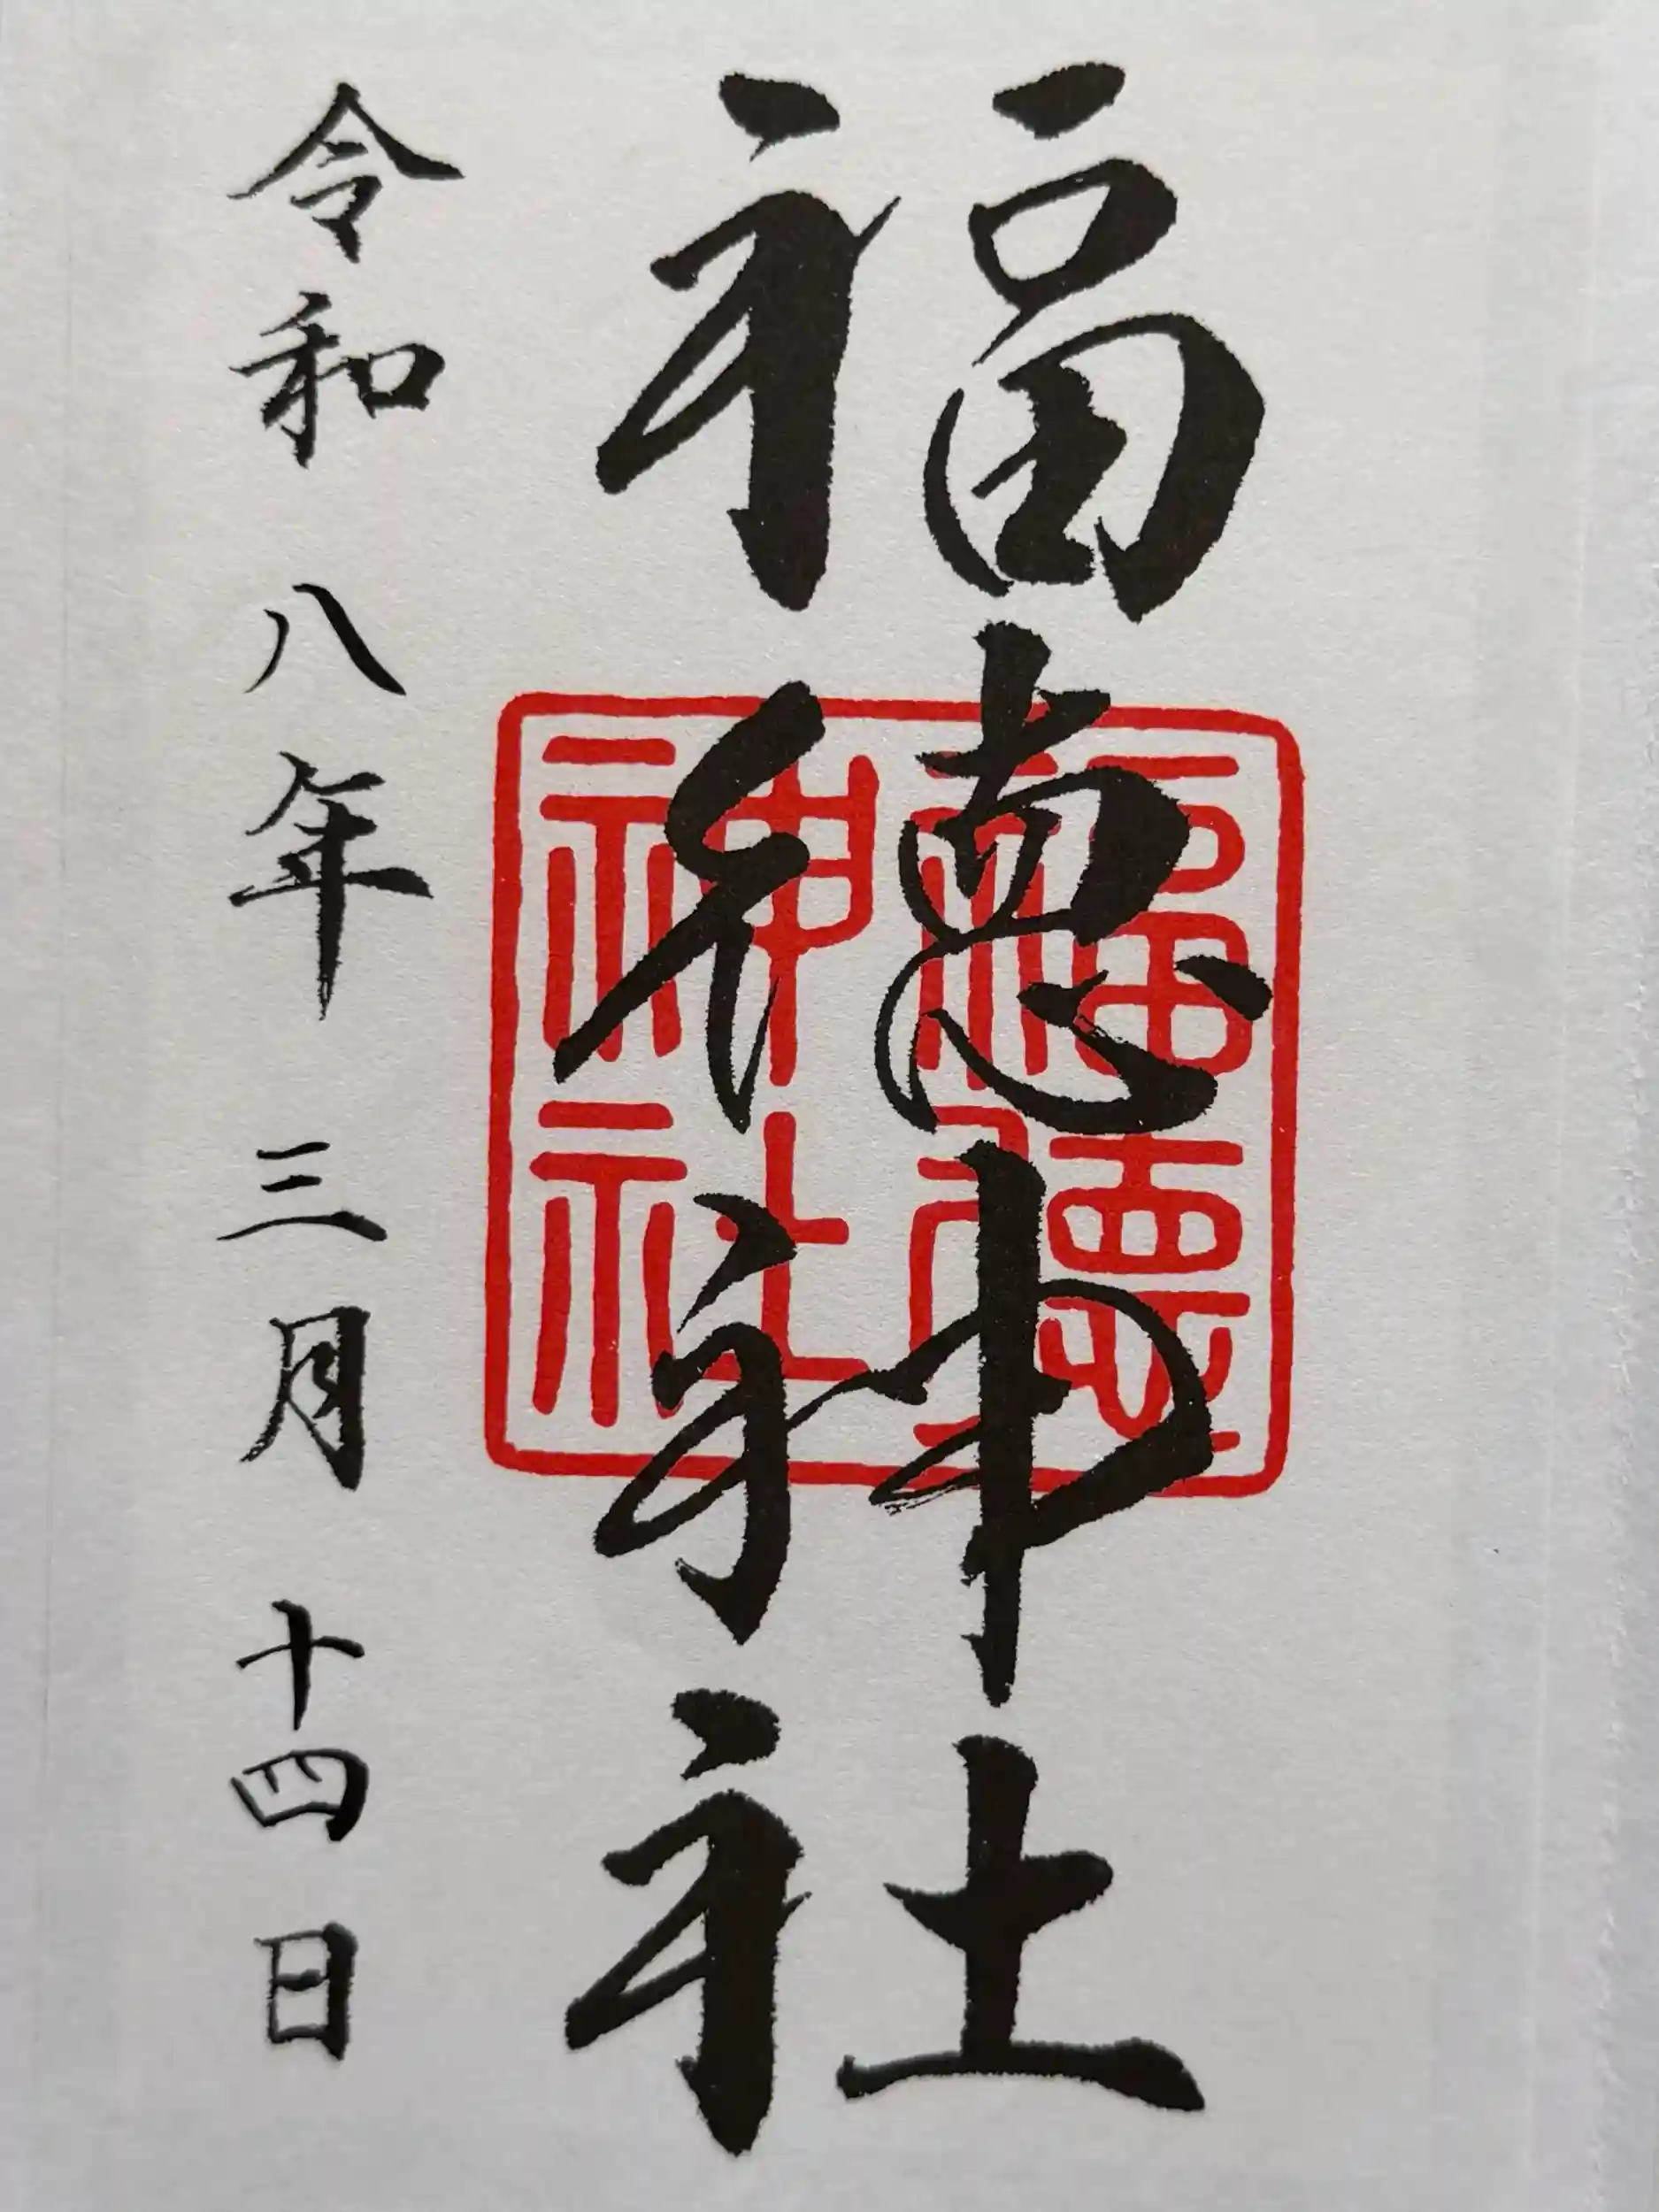 福徳神社
福德
神社
令和八年三月十四日